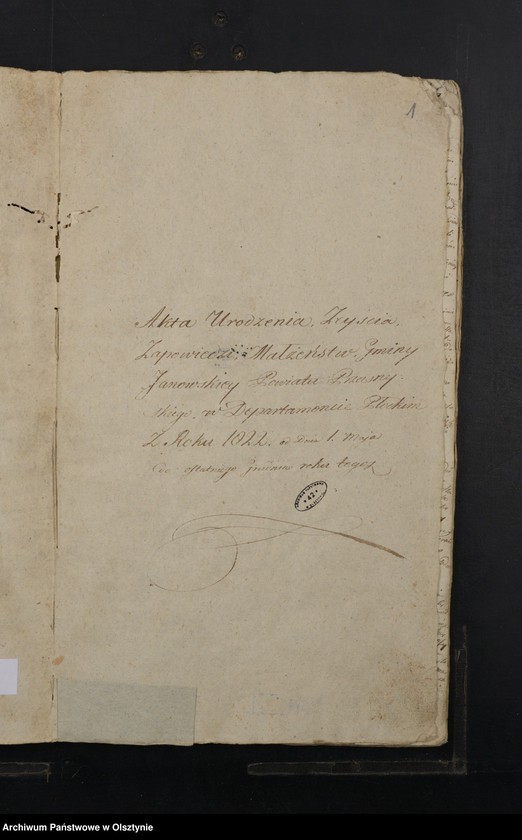 1
Akta Urodzenia, Zeyścia,
Zapowiedzi, Małżeństw, Gminy
Janowskiey Powiatu Przasny-
skiego, w Departamencie Płockim
Z Roku 1822. od Dnia 1. Maja
do ostatniego roku tegoż
42
Archiwum Państwowe w Olsztynie